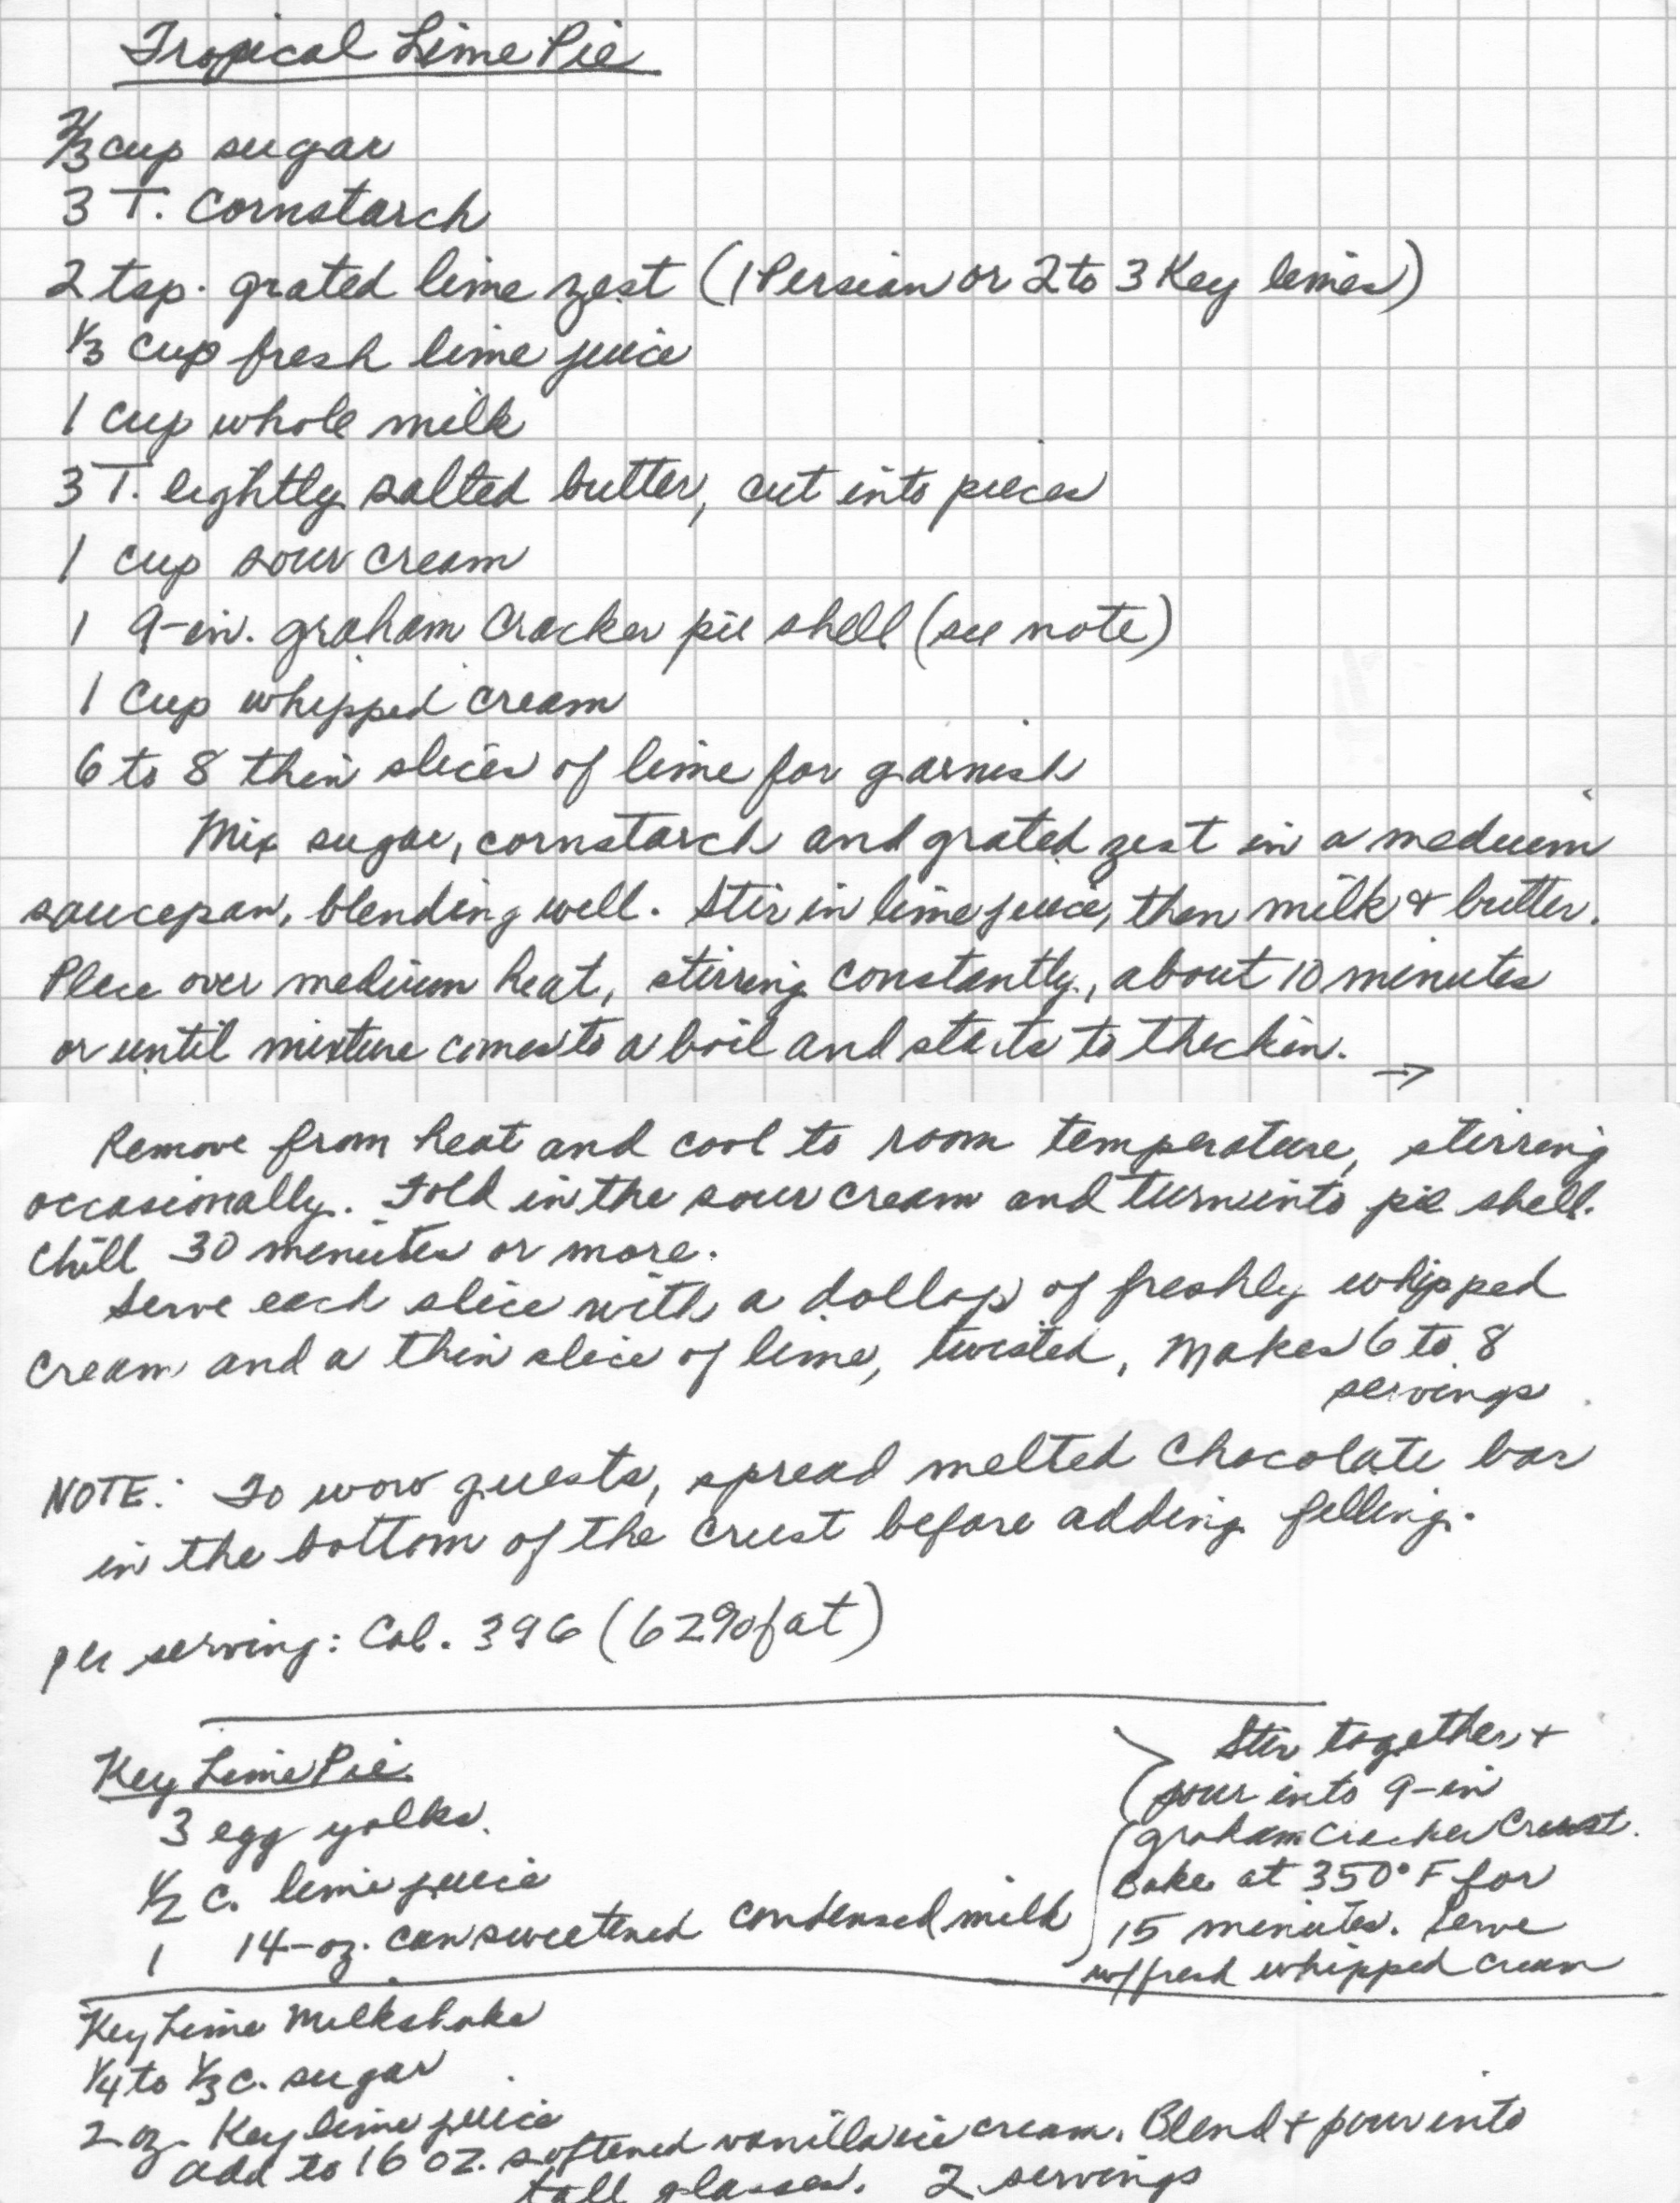 Tropical Lime Pie
2/3 cup sugar
3 T. cornstarch
2 tsp. grated lime zest (1 Persian or 2 to 3 Key limes)
1/3 cup fresh lime juice
1 cup whole milk
3 T. lightly salted butter, cut into pieces
1 cup sour cream
1 9-in. graham cracker pie shell (see note)
1 cup whipped cream
6 to 8 thin slices of lime for garnish
Mix sugar, cornstarch and grated zest in a medium
saucepan, blending well. Stir in lime juice, then milk & butter.
Place over medium heat, stirring constantly, about 10 minutes
or until mixture comes to a boil and starts to thicken.
→
Remove from heat and cool to room temperature, stirring
occasionally. Fold in the sour cream and turn into pie shell.
Chill 30 minutes or more.
Serve each slice with a dollop of freshly whipped
cream and a thin slice of lime, twisted, Makes 6 to 8
servings.
NOTE: To wow guests, spread melted chocolate bar
in the bottom of the crust before adding filling.
per serving: Cal. 396 (62% fat)
Key Lime Pie
3 egg yolks
1/2 c. lime juice
1 14-oz. can sweetened condensed milk
Stir together +
pour into 9-in
graham cracker crust.
Bake at 350° F for
15 minutes. Serve
w/fresh whipped cream
Key Lime Milkshake
1/4 to 1/3 c. sugar
2 oz. Key lime juice
add to 16 oz. softened vanilla ice cream. Blend + pour into
tall glasses. 2 servings